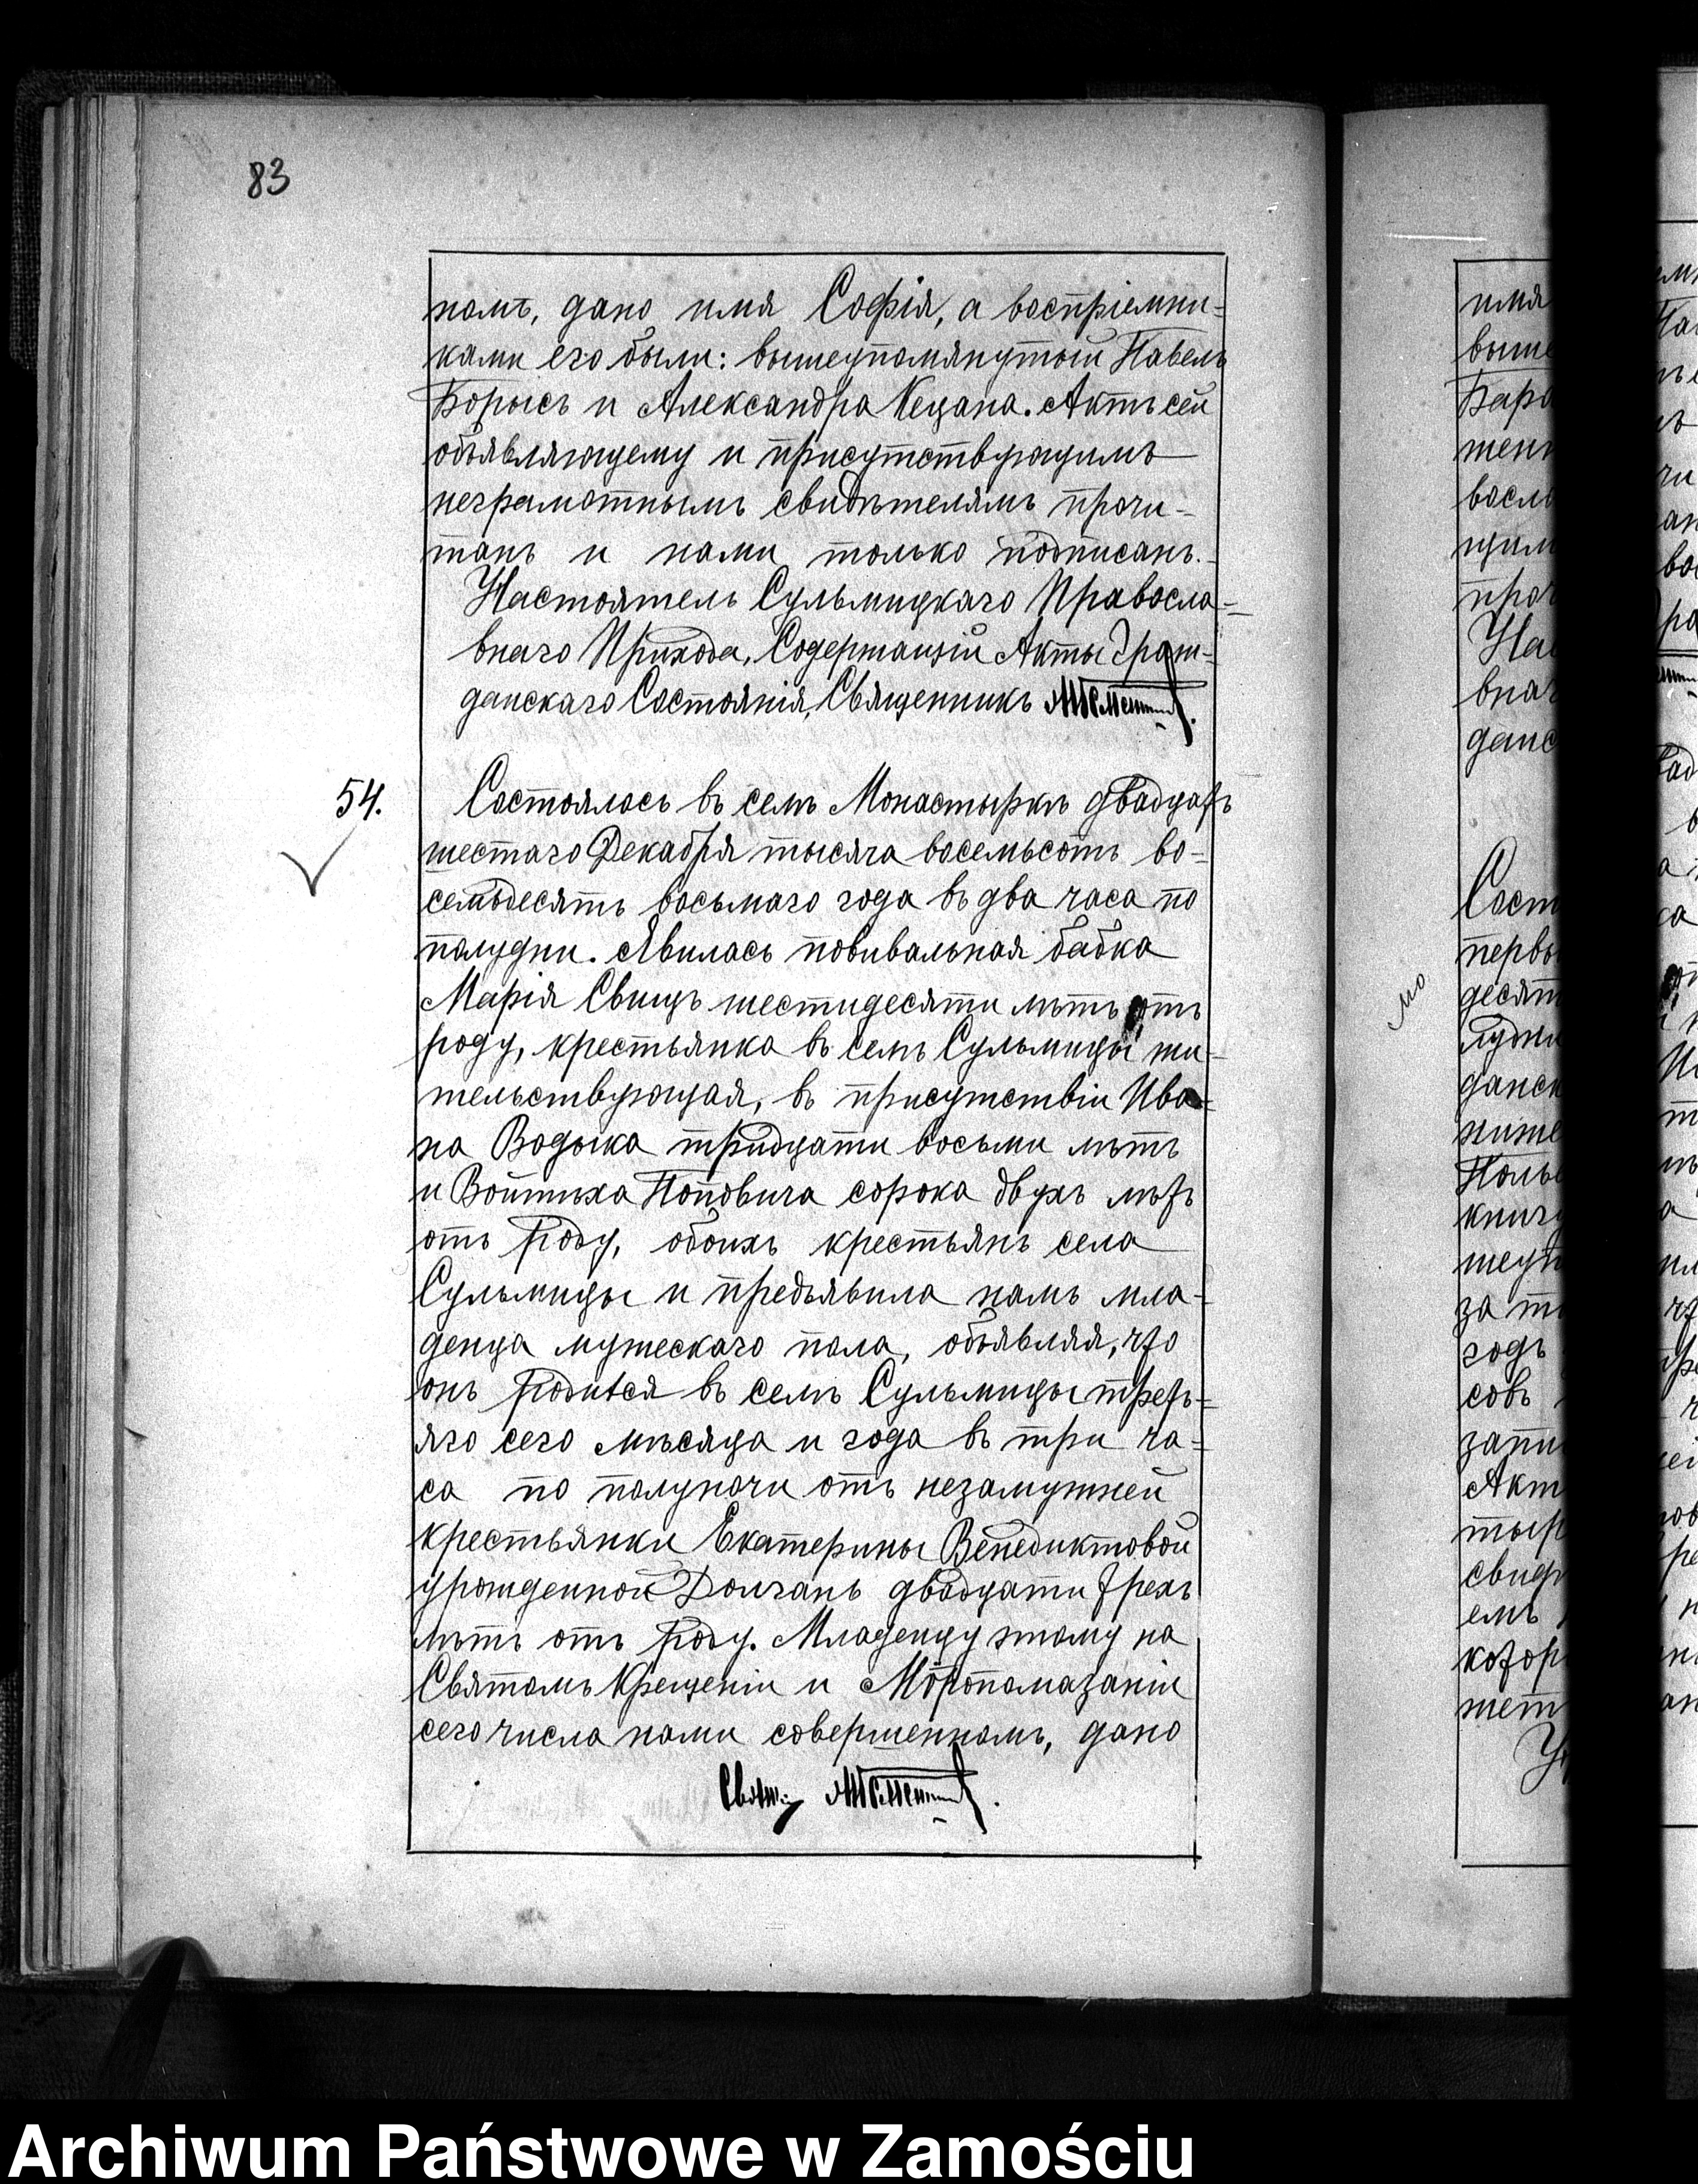 83
номъ, дано имя Софія, а воспріемни-
ками его были: вышеупомянутый Павелъ
Борысь и Александра Кецана. Актъ сей
объявляющему и присутствующимъ
неграмотнымъ свидѣтелямъ прочи-
танъ и нами только подписанъ.
Настоятель Сульмицкаго Правосла-
внаго Прихода, Содержащій Акты Граж-
данскаго Состоянія, Священникъ
54.
Состоялось въ селѣ Монастыркѣ двадцать
шестаго Декабря тысяча восемьсотъ во-
семьдесятъ восьмаго года въ два часа по
полудни. Явилась повивальная бабка
Марія Свищъ шестидесяти лѣтъ отъ
роду, крестьянка въ селѣ Сульмицы жи-
тельствующая, въ присутствіи Ива-
на Водыка тридцати восьми лѣтъ
и Войтѣха Поповича сорока двухъ лѣтъ
отъ роду, обоихъ крестьянъ села
Сульмицы и предъявила намъ мла-
денца мужескаго пола, объявляя, что
онъ родился въ селѣ Сульмицы треть-
яго сего мѣсяца и года въ три ча-
са по полуночи отъ незамужней
крестьянки Екатерины Венедиктовой
урожденной Долганъ двадцати трехъ
лѣтъ отъ роду. Младенцу этому на
Святомъ Крещеніи и Мѵропомазаніи
сего числа нами совершенномъ, дано
имя
выше
Бара
жен
восль
щим
проч
На
внаг
данс
Сост
первы
десят
лудни
данск
жите
Поль
книг
шеуп
за т
годъ
совъ
запи
Акт
тыр
свид
емъ
котор
жет
Archiwum Państwowe w Zamościu